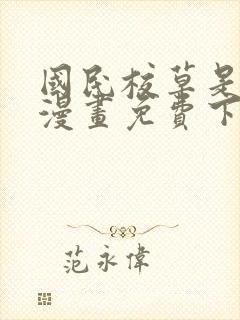 國民校草是
漫畫免費下
范永偉